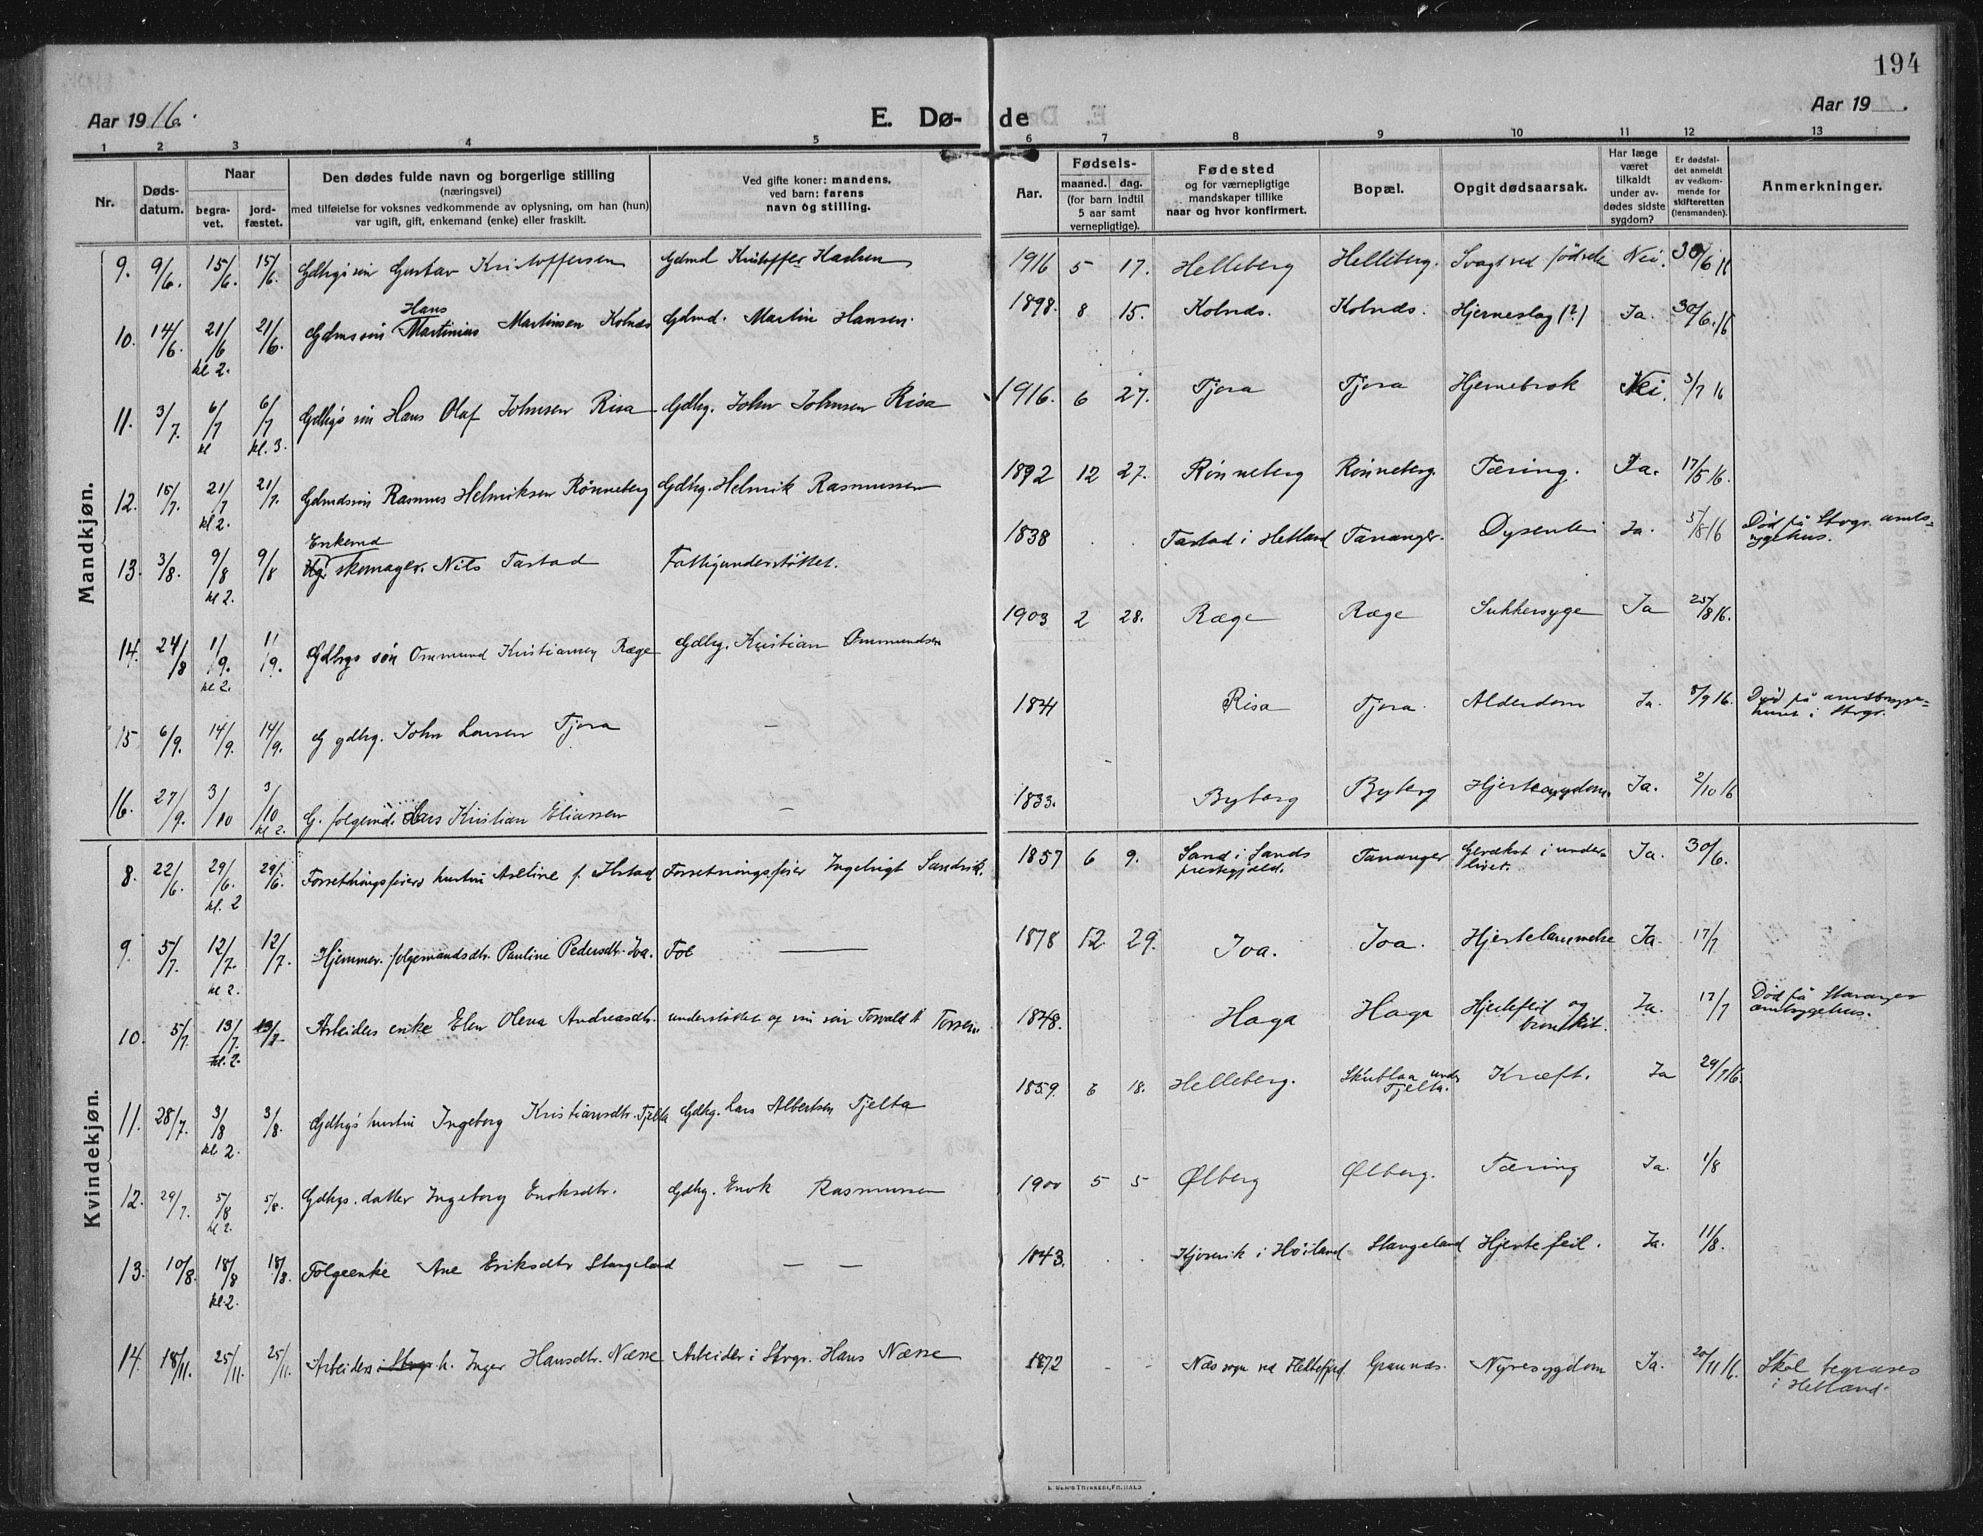 194
Aar 1916.
E. Dø- de
Aar 19 .
1 2 3 4 5 6 7 8 9 10 11 12 13
Nr.
Døds-
datum.
Naar
begra-
vet.
jord-
fæstet.
Den dødes fulde navn og borgerlige stilling
(næringsvei)
med tilføielse for voksnes vedkommende av oplysning, om han (hun)
var ugift, gift, enkemand (enke) eller fraskilt.
Ved gifte koner: mandens,
ved barn: farens
navn og stilling.
Aar.
Fødsels-
maaned. dag.
(for barn indtil
5 aar samt
vernepligtige).
Fødested
og for værnepligtige
mandskaper tillike
naar og hvor konfirmert.
Bopæl.
Opgit dødsaarsak.
Har læge
været
tilkaldt
under av-
dødes sidste
sygdom?
Er dødsfal-
det anmeldt
av vedkom-
mende for
skifteretten
(lensmanden).
Anmerkninger.
Mandkjøn.
9. 9/6. 15/6. 15/6. Gdbrgs søn Gustav Kristoffersen Gdmd Kristoffer 1916 5 17. Helleberg Helleberg. Svagt ved fødsele Nei. 30/6 16
Hans
10. 14/6. 21/6 kl 2. 21/6. Gdmssøn Martinius Martinsen Kolnæs Gdmd. Martin Hansen. 1898. 8 15. Kolnæs. Kolnæs. Hjerneslag (?) Ja. 30/6.16
11. 3/7. 6/7 kl 6/7 kl. 3. Gdbrgs søn Hans Olaf Johnsen Risa Gdbrg. John Johnsen Risa 1916. 6 27. Tjora Tjora Hjernebrok Nei. 3/7 16
12. 15/7. 21/7 kl 2. 21/7. Gdmdssøn Rasmus Helmiksen Rønneberg Gdbrg. Helmik Rasmussen 1892 12 27. Rønneberg Rønneberg. Tæring. Ja. 17/5 16.
Enkemd
13. 3/8. 9/8 kl 2. 9/8 skomager. Nils Tastad Fattigunderstøttet. 1838 . . Tastad i Hetland Tananger. Dysenteri Ja. 5/8 16 Død på Stvgr. amts-
sygehus.
14. 24/8 1/9. kl 2. 1/9. Gdbrgs søn Ommund Kristiansen Ræge Gdbrg. Kristian Ommundsen 1903 2 28. Ræge Ræge Sukkersyge Ja 25/8 16.
15 6/9. 14/9. 14/9. G gdbrg. John Larsen Tjora — Risa Tjora. Alderdom Ja. 8/9 16. Død på amtssyge-
huset i Stvgr.
16. 27/9. 3/10 3/10 kl 2. G. følgemd. Lars Kristian Eliassen — 1833. Byberg Byberg Hjertesygdom. Ja. 2/10 16
Kvindekjøn.
8. 22/6. 29/6. kl. 2 29/6. Forretningsførers hustru Aseline f. Ilstad Forretningsfører Ingebrigt Sandvik. 1857 6 9. Sand i Sands
prestegjæld. Tananger Gevækst i under-
livet. Ja. 30/6.
9. 5/7. 12/7. kl 2. 12/7. Hjemmev. følgemandsdtr. Pauline Pedersdtr. Joa. Fol — 1878 12 29. Joa. Joa. Hjertelammelse Ja. 17/7
10. 5/7. 13/7. kl. 2. 13/7 Arbeiders enke Elen Olena Andreasdtr. understøttet af sin søn Torvald 1848. Haga Haga Hjertefeil og
bronkit. Ja. 17/7 Død på Stavanger
amtsygehus.
11. 28/7. 3/8 kl 2. 3/8. Gdbrgs hustru Ingeborg Kristiansdtr. Tjelta Gdbrg. Lars Albertsen Tjelta 1859. 6 18. Helleberg. Skiblaa under
Tjelta. Kræft. Ja 29/7 16.
12. 29/7. 5/8 kl 2. 5/8. Gdbrgs. datter Ingeborg Enoksdtr. Gdbrg. Enok Rasmussen 1900 5 5 Ølberg Ølberg. Tæring Ja. 1/8
13. 10/8. 18/8 kl 2. 18/8. Følgeenke Ane Eriksdtr Stangeland — — 1843. . . i Høiland Stangeland Hjertefeil. Ja. 11/8.
14. 18/11. 25/11. 25/11. Arbeiders i Stvgr. h. Inger Hansdtr. Næsse Arbeider i Stvgr. Hans Næsse 1872 - - Næs sogn Grannæs. Nyresygdom Ja. 20/11 16. Skal begraves
i Hetland.